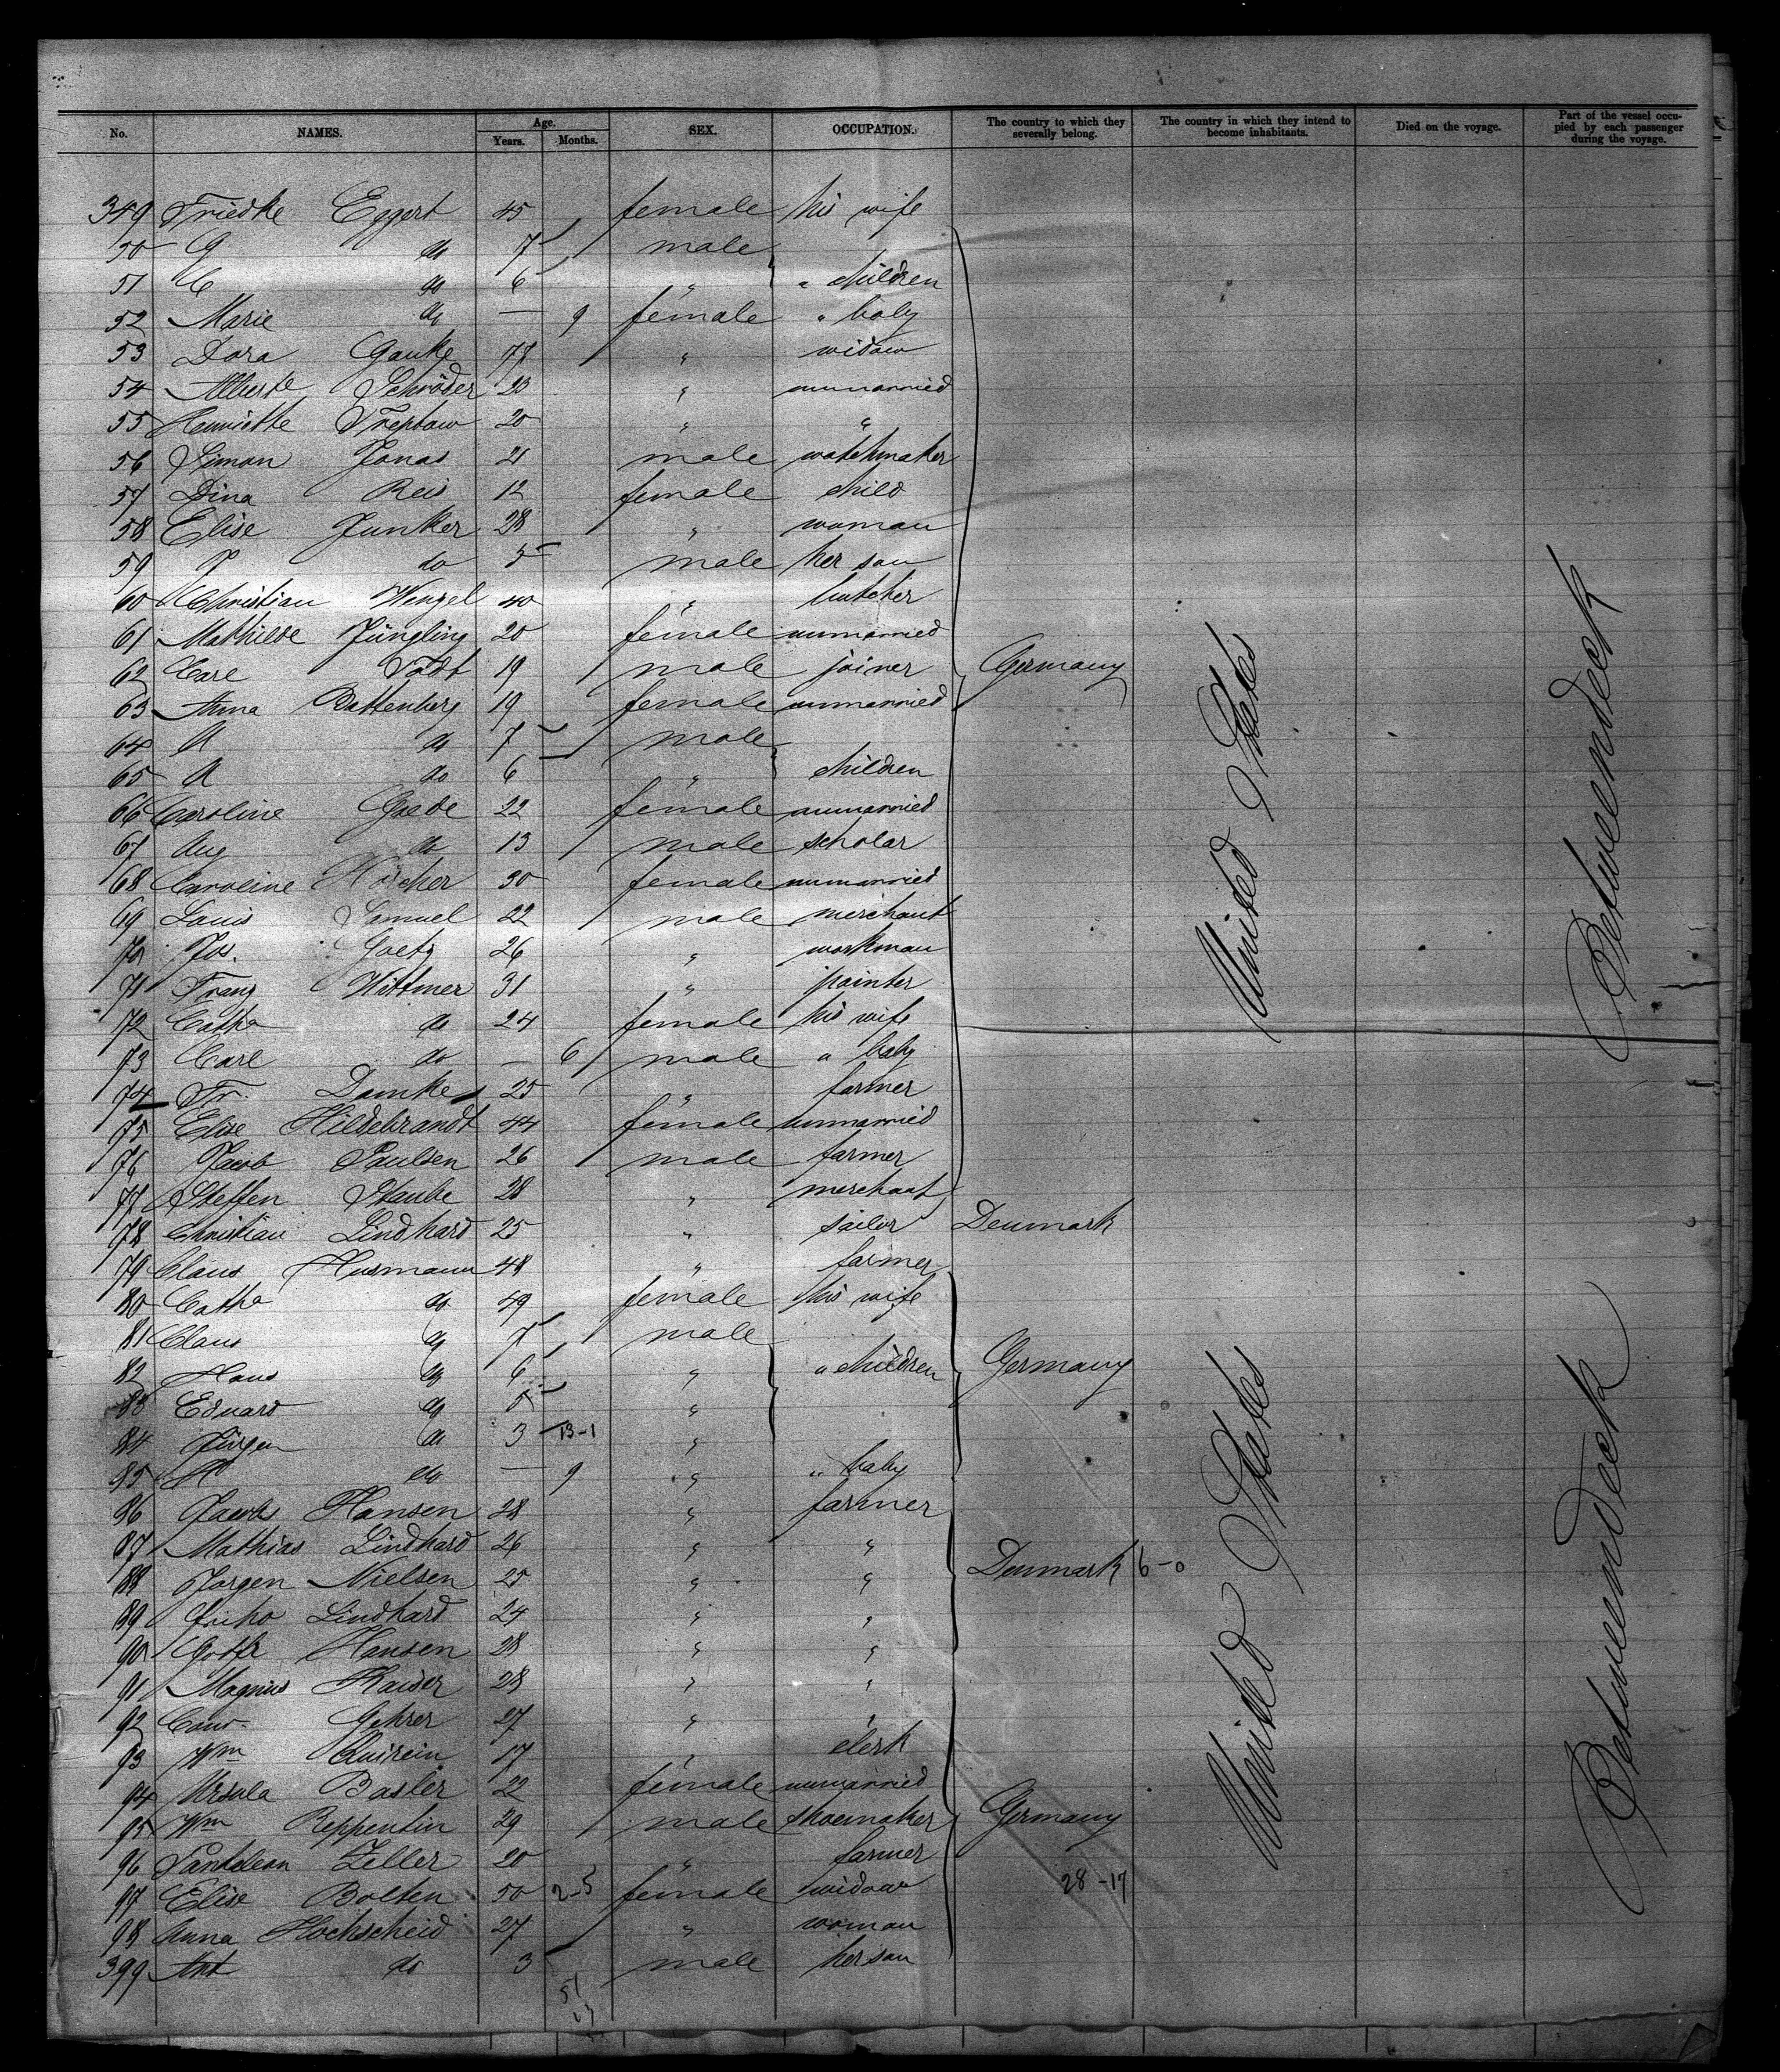 No. NAMES. Age. Years. Months. SEX. OCCUPATION. The country to which they severally belong. The country in which they intend to become inhabitants. Died on the voyage. Part of the vessel occupied by each passenger during the voyage.
349 Friedke Eggert 45 female his wife
50 G do 7 male
51 C do 6 " " children
52 Marie do — 9 female " baby
53 Dora Gauke 77 " widow
54 Alberte Schröder 23 " unmarried
55 Henriette Treptow 20 " "
56 Simon Jonas 21 male watchmaker
57 Dina Reis 12 female child
58 Elise Junker 28 " woman
59 J do 5 male her son
60 Christian Wenzel 40 " butcher
61 Mathilde Jüngling 20 female unmarried
62 Carl Todt 19 male joiner Germany
63 Anna Battenberg 19 female unmarried
64 A do 7 male
65 A do 6 " children
66 Caroline Grede 22 female unmarried
67 Aug do 13 male scholar
68 Caroline Körcher 30 female unmarried
69 Louis Samuel 22 male merchant
70 Jos. Goetz 26 " workman
71 Franz Wittmer 31 " painter
72 Catha do 24 female his wife
73 Carl do — 6 male " baby
74 Fr. Damke 25 " farmer
75 Elise Hildebrandt 44 female unmarried
76 Jacob Paulsen 26 male farmer
77 Steffen Staube 28 " merchant
78 Christian Lindhard 25 " sailor Denmark
79 Claus Husmann 48 " farmer
80 Catha do 49 female his wife
81 Claus do 7 male
82 Hans do 6 " " children Germany
83 Eduard do 5 "
84 Jürgen do 3 13-1 "
85 H do — 9 " " baby
86 Jacob Hansen 28 " farmer
87 Mathias Lindhard 26 " "
88 Jorgen Nielsen 25 " " Denmark 6-0
89 Lindhard 24 " "
90 Hansen 28 " "
91 Magnus Kaiser 28 " "
92 Conr. Gehrer 27 " "
93 Wm Quirein 17 " clerk
94 Ursula Basler 22 female unmarried
95 Wm Reppentin 29 male shoemaker Germany
96 Pantaleon Zeller 20 " farmer
97 Elise Bolten 50 2-5 female widow 28-17
98 Anna Hochscheid 27 " woman
399 Ant do 3 male her son
51
United States
Betweendeck
United States
Betweendeck